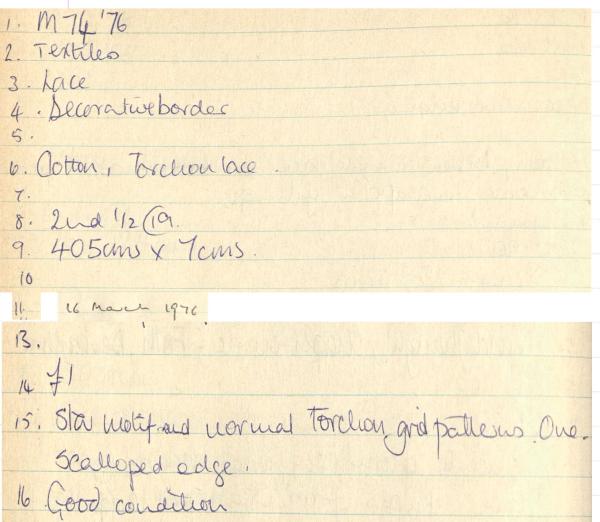 1. M74 '76
2. Textiles
3. Lace
4. Decorative border
5.
6. Cotton, Torchon lace.
7.
8. 2nd 1/2 C19.
9. 405cms x 7cms.
10
11. 16 March 1976
13.
14 £1
15. Star motif and normal Torchon grid patterns. One-
scalloped edge.
16 Good condition